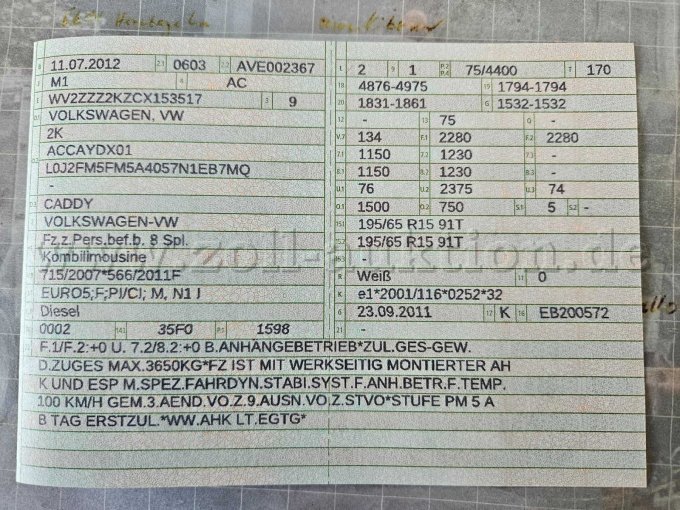 B 11.07.2012 2.1 0603 2.2 AVE002367
J M1 4 AC
E WV2ZZZ2KZCX153517 3 9
D.1 VOLKSWAGEN, VW
2K
D.2 ACCAYDX01
L0J2FM5FM5A4057N1EB7MQ
-
D.3 CADDY
VOLKSWAGEN-VW
Fz.z.Pers.bef.b. 8 Spl.
Kombilimousine
715/2007*566/2011F
EURO5;F;PI/CI; M, N1 I
Diesel
0002 14.1 35F0 P.1 1598
L 2 9 1 P.2 P.4 75/4400 T 170
18 4876-4975 19 1794-1794
20 1831-1861 G 1532-1532
12 - 13 75 Q -
V.7 134 F.1 2280 F.2 2280
7.1 1150 7.2 1230 7.3 -
8.1 1150 8.2 1230 8.3 -
U.1 76 U.2 2375 U.3 74
O.1 1500 O.2 750 S.1 5 S.2 -
15.1 195/65 R15 91T
15.2 195/65 R15 91T
15.3 -
R Weiß 11 0
K e1*2001/116*0252*32
6 23.09.2011 17 K 16 EB200572
21 -
F.1/F.2:+0 U. 7.2/8.2:+0 B.ANHANGEBETRIEB*ZUL.GES-GEW.
D.ZUGES MAX.3650KG*FZ IST MIT WERKSEITIG MONTIERTER AH
K UND ESP M.SPEZ.FAHRDYN.STABI.SYST.F.ANH.BETR.F.TEMP.
100 KM/H GEM.3.AEND.VO.Z.9.AUSN.VO.Z.STVO*STUFE PM 5 A
B TAG ERSTZUL.*WW.AHK LT.EGTG*
www.zoll-auktion.de